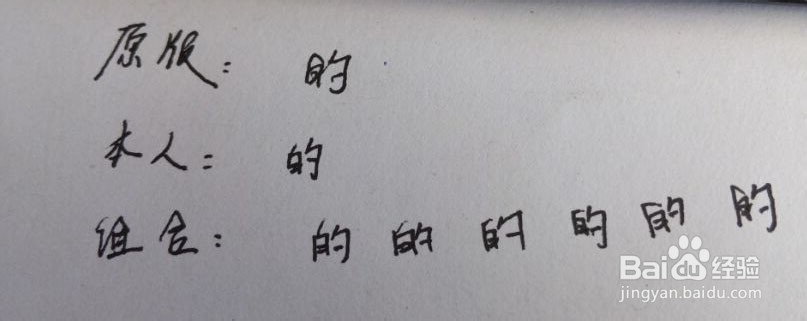 原版： 的
本人： 的
组合： 的 的 的 的 的 的
Baidu经验
jingyan.baidu.com